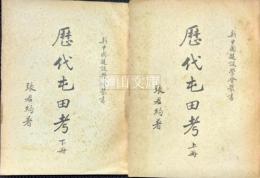 新中國建設學會叢書
歷代屯田考
上冊
張君約著
新中國建設學會叢書
歷代屯田考
下冊
張君約著